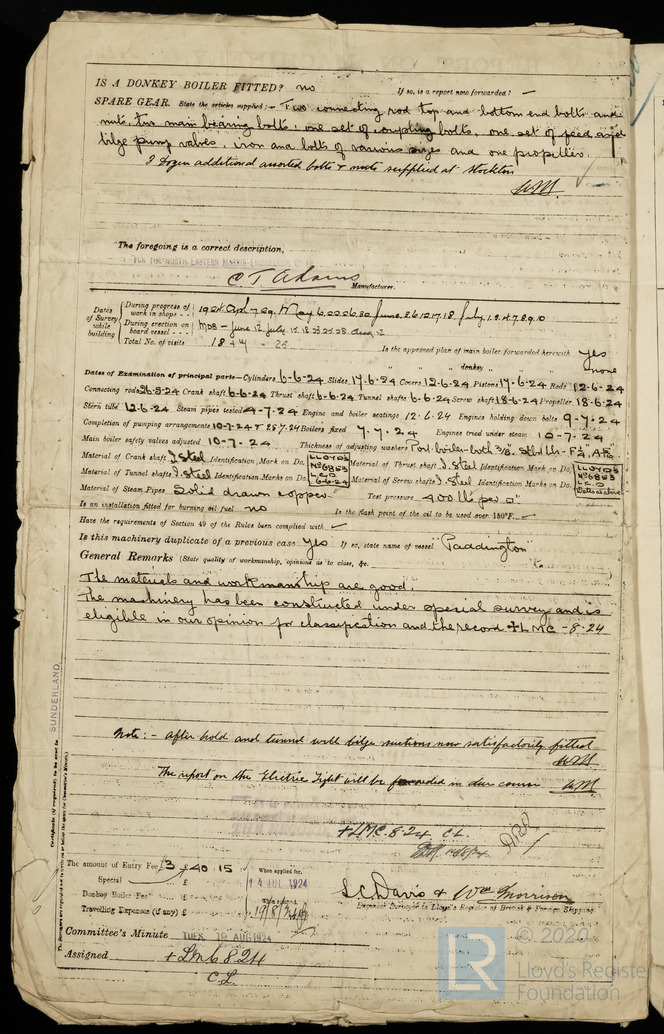 IS A DONKEY BOILER FITTED? no If so, is a report now forwarded? –
SPARE GEAR. State the articles supplied:— Two connecting rod top and bottom end bolts and
nuts, two main bearing bolts, one set of coupling bolts, one set of feed and
bilge pump valves, iron and bolts of various sizes and one propeller.
3 Dozen additional assorted bolts & nuts supplied at Stockton
WM
The foregoing is a correct description,
FOR THE NORTH EASTERN MARINE
C T Adams
Manufacturer.
Dates of Survey while building
During progress of work in shops - - 1924 Apl. 7. 29. May 6. 22. 26. 30 June. 2. 6. 12. 17. 18 July. 1. 2. 4. 7. 8. 9. 10
During erection on board vessel - - - MDB - June. 12. July. 15. 18. 23. 25. 28. Aug. 2
Total No. of visits 18 + 7
Is the approved plan of main boiler forwarded herewith yes
" " donkey " " " none
Dates of Examination of principal parts—Cylinders 6-6-24 Slides 17.6.24 Covers 12.6.24 Pistons 17.6.24 Rods 12-6-24
Connecting rods 26.5.24 Crank shaft 6-6-24 Thrust shaft 6-6-24 Tunnel shafts 6-6-24 Screw shaft 18-6-24 Propeller 18.6.24
Stern tube 12.6-24 Steam pipes tested 4-7-24 Engine and boiler seatings 12.6.24 Engines holding down bolts 9-7-24
Completion of pumping arrangements 10-7-24 & 28.7.24 Boilers fixed 7.7.24 Engines tried under steam 10-7-24
Main boiler safety valves adjusted 10-7.24 Thickness of adjusting washers Port boiler-both 3/8.
Material of Crank shaft I. Steel Identification Mark on Do. LLOYD'S No 6853 L.C.D 6-6-24 Material of Thrust shaft I. Steel Identification Mark on Do. LLOYD'S No 6853 L.C.D
Material of Tunnel shafts I. Steel Identification Marks on Do. Material of Screw shafts I. Steel Identification Marks on Do. Dates as above
Material of Steam Pipes Solid drawn copper Test pressure 400 lb per □"
Is an installation fitted for burning oil fuel no Is the flash point of the oil to be used over 150°F. ✓
Have the requirements of Section 49 of the Rules been complied with ✓
Is this machinery duplicate of a previous case Yes If so, state name of vessel "Paddington"
General Remarks (State quality of workmanship, opinions as to class, &c.
The materials and workmanship are good.
The machinery has been constructed under special survey and is
eligible in our opinion for classification and the record + LMC - 8.24
Note:- After hold and tunnel well bilge suctions now satisfactorily fitted
WM
The report on the Electric Light will be forwarded in due course WM
+ LMC. 8.24 C.L.
The amount of Entry Fee £3 £40.15 When applied for,
Special £ 14 AUG 1924
Donkey Boiler Fee £
Travelling Expenses (if any) £ 19/8/24
L.C. Davis & Wm Morrison
Engineer Surveyor to Lloyd's Register of British & Foreign Shipping
Committee's Minute TUES. 19 AUG 1924
Assigned + Lmc 8.24
C.L.
SUNDERLAND
© 2020
LR Lloyd's Register
Foundation